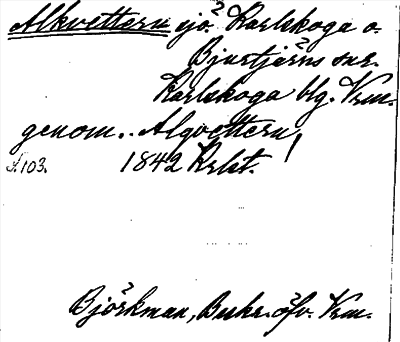 Alkvettern sjö. Karlskoga o.
Bjurtjärns snr.
Karlskoga blg. Vrm.
genom.. Alqvettern!
s. 103. 1842 Krbt.
Björkman, Beskr. öfv. Vrm.